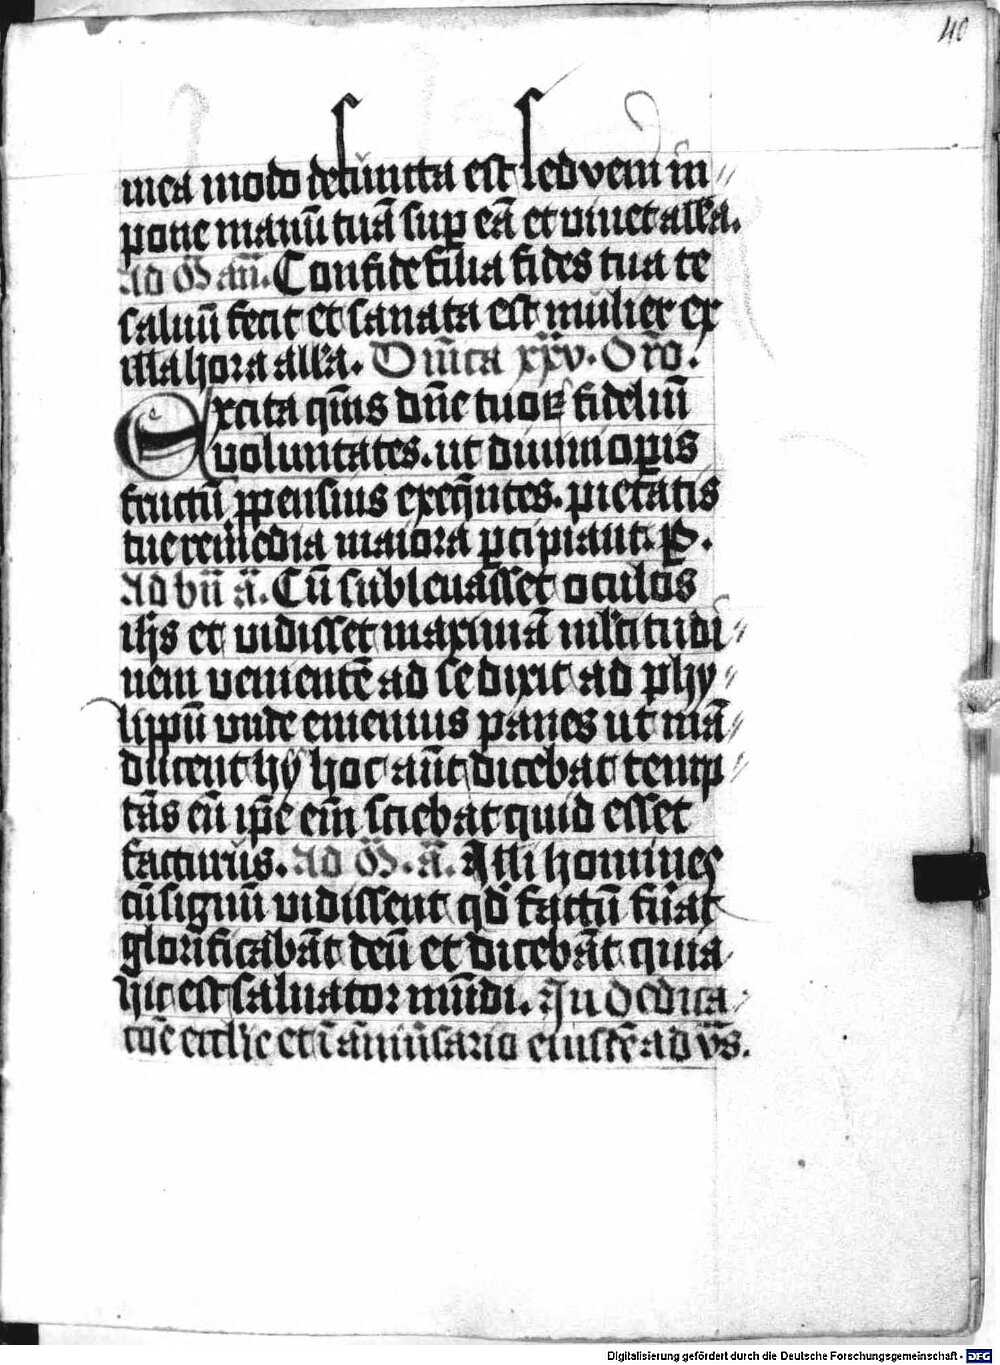 40
mea modo defūncta est sed veni in
pone manū tuā sup eā et viuet all'a.
Ad M̄ añ. Confide filia fides tua te
saluū fecit et sanata est mulier ex
illa hora all'a. Dn̄ica xxv. Oro.
Excita qm̄s dn̄e tuoꝝ fideliū
voluntates. ut diuini oꝑis
fructū ꝓpensius exeqn̄tes. pietatis
tue remedia maiora ꝑcipiant. P.
Ad bn̄ ā. Cū subleuasset oculos
ih̄s et vidisset maximā ml'titudi
nem venientē ad se dixit ad phy
lippū vnde ememus panes ut mā
ducent hij hoc aūt dicebat temp
tās eū ip̄e em̄ sciebat quid esset
facturus. Ad M̄. ā. Illi homines
cū signū vidissent qd̄ factū fuāt
glorificabāt deū et dicebāt quia
hic est saluator mūdi. In dedica
cōe ecclie et ī anniūsario eiusdē ad v̄s.
Digitalisierung gefördert durch die Deutsche Forschungsgemeinschaft - DFG